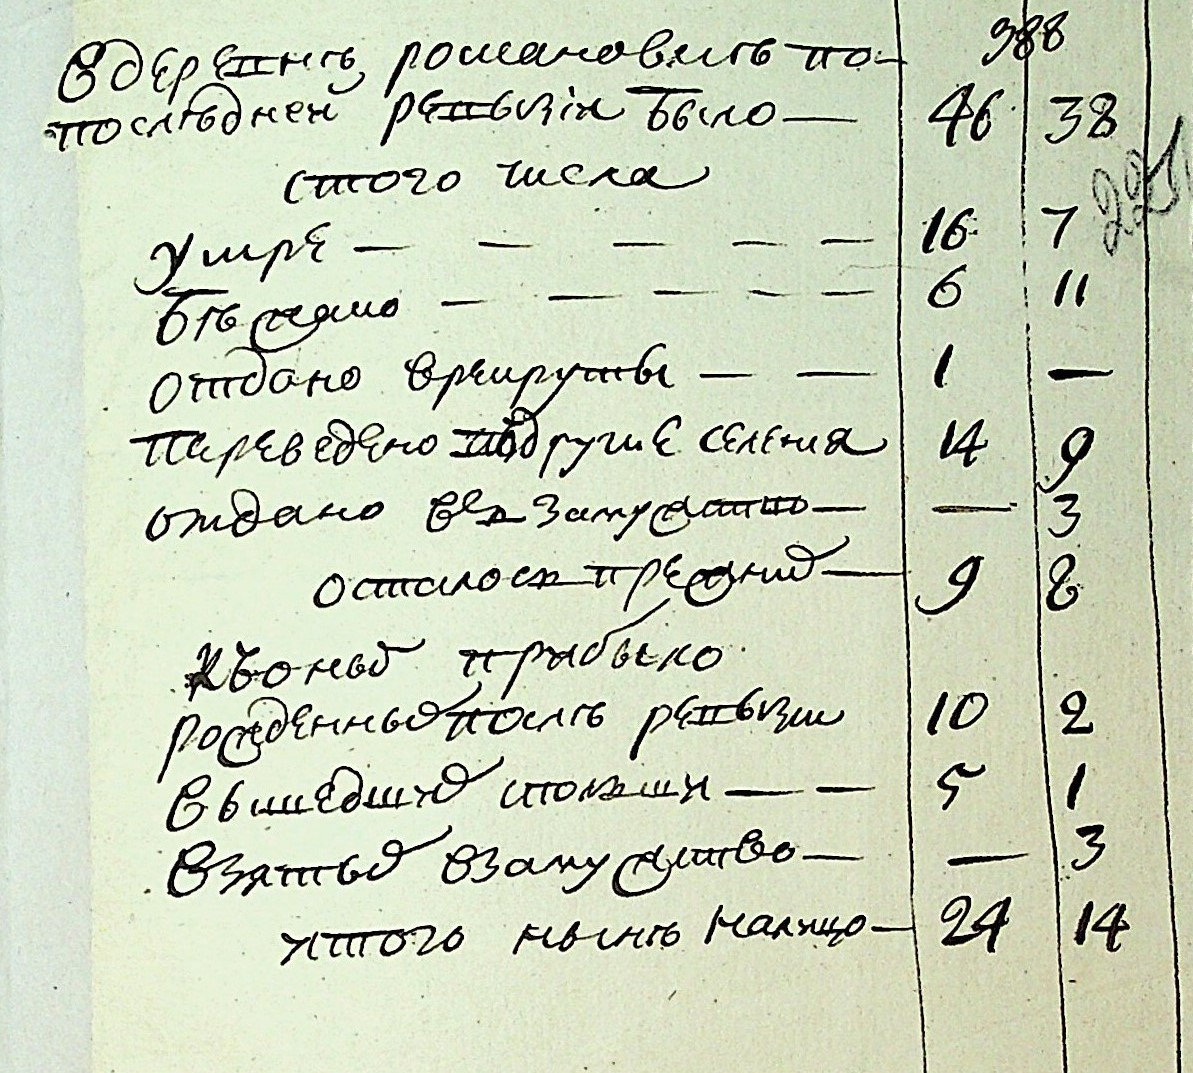 988
вдеревнѣ романовкѣ по-
последней ревизіи было — 46 38
стого числа
умре — — — — — 16 7
бежало — — — — — 6 11
отдано врекруты — — 1 —
переведено вдругие селения 14 9
отдано взамужство — — 3
осталось прежних — 9 8
къоным прибыло
рожденных после ревизии 10 2
вышедших споляши — — 5 1
взятых взамужство — — 3
итого ныне налицо — 24 14